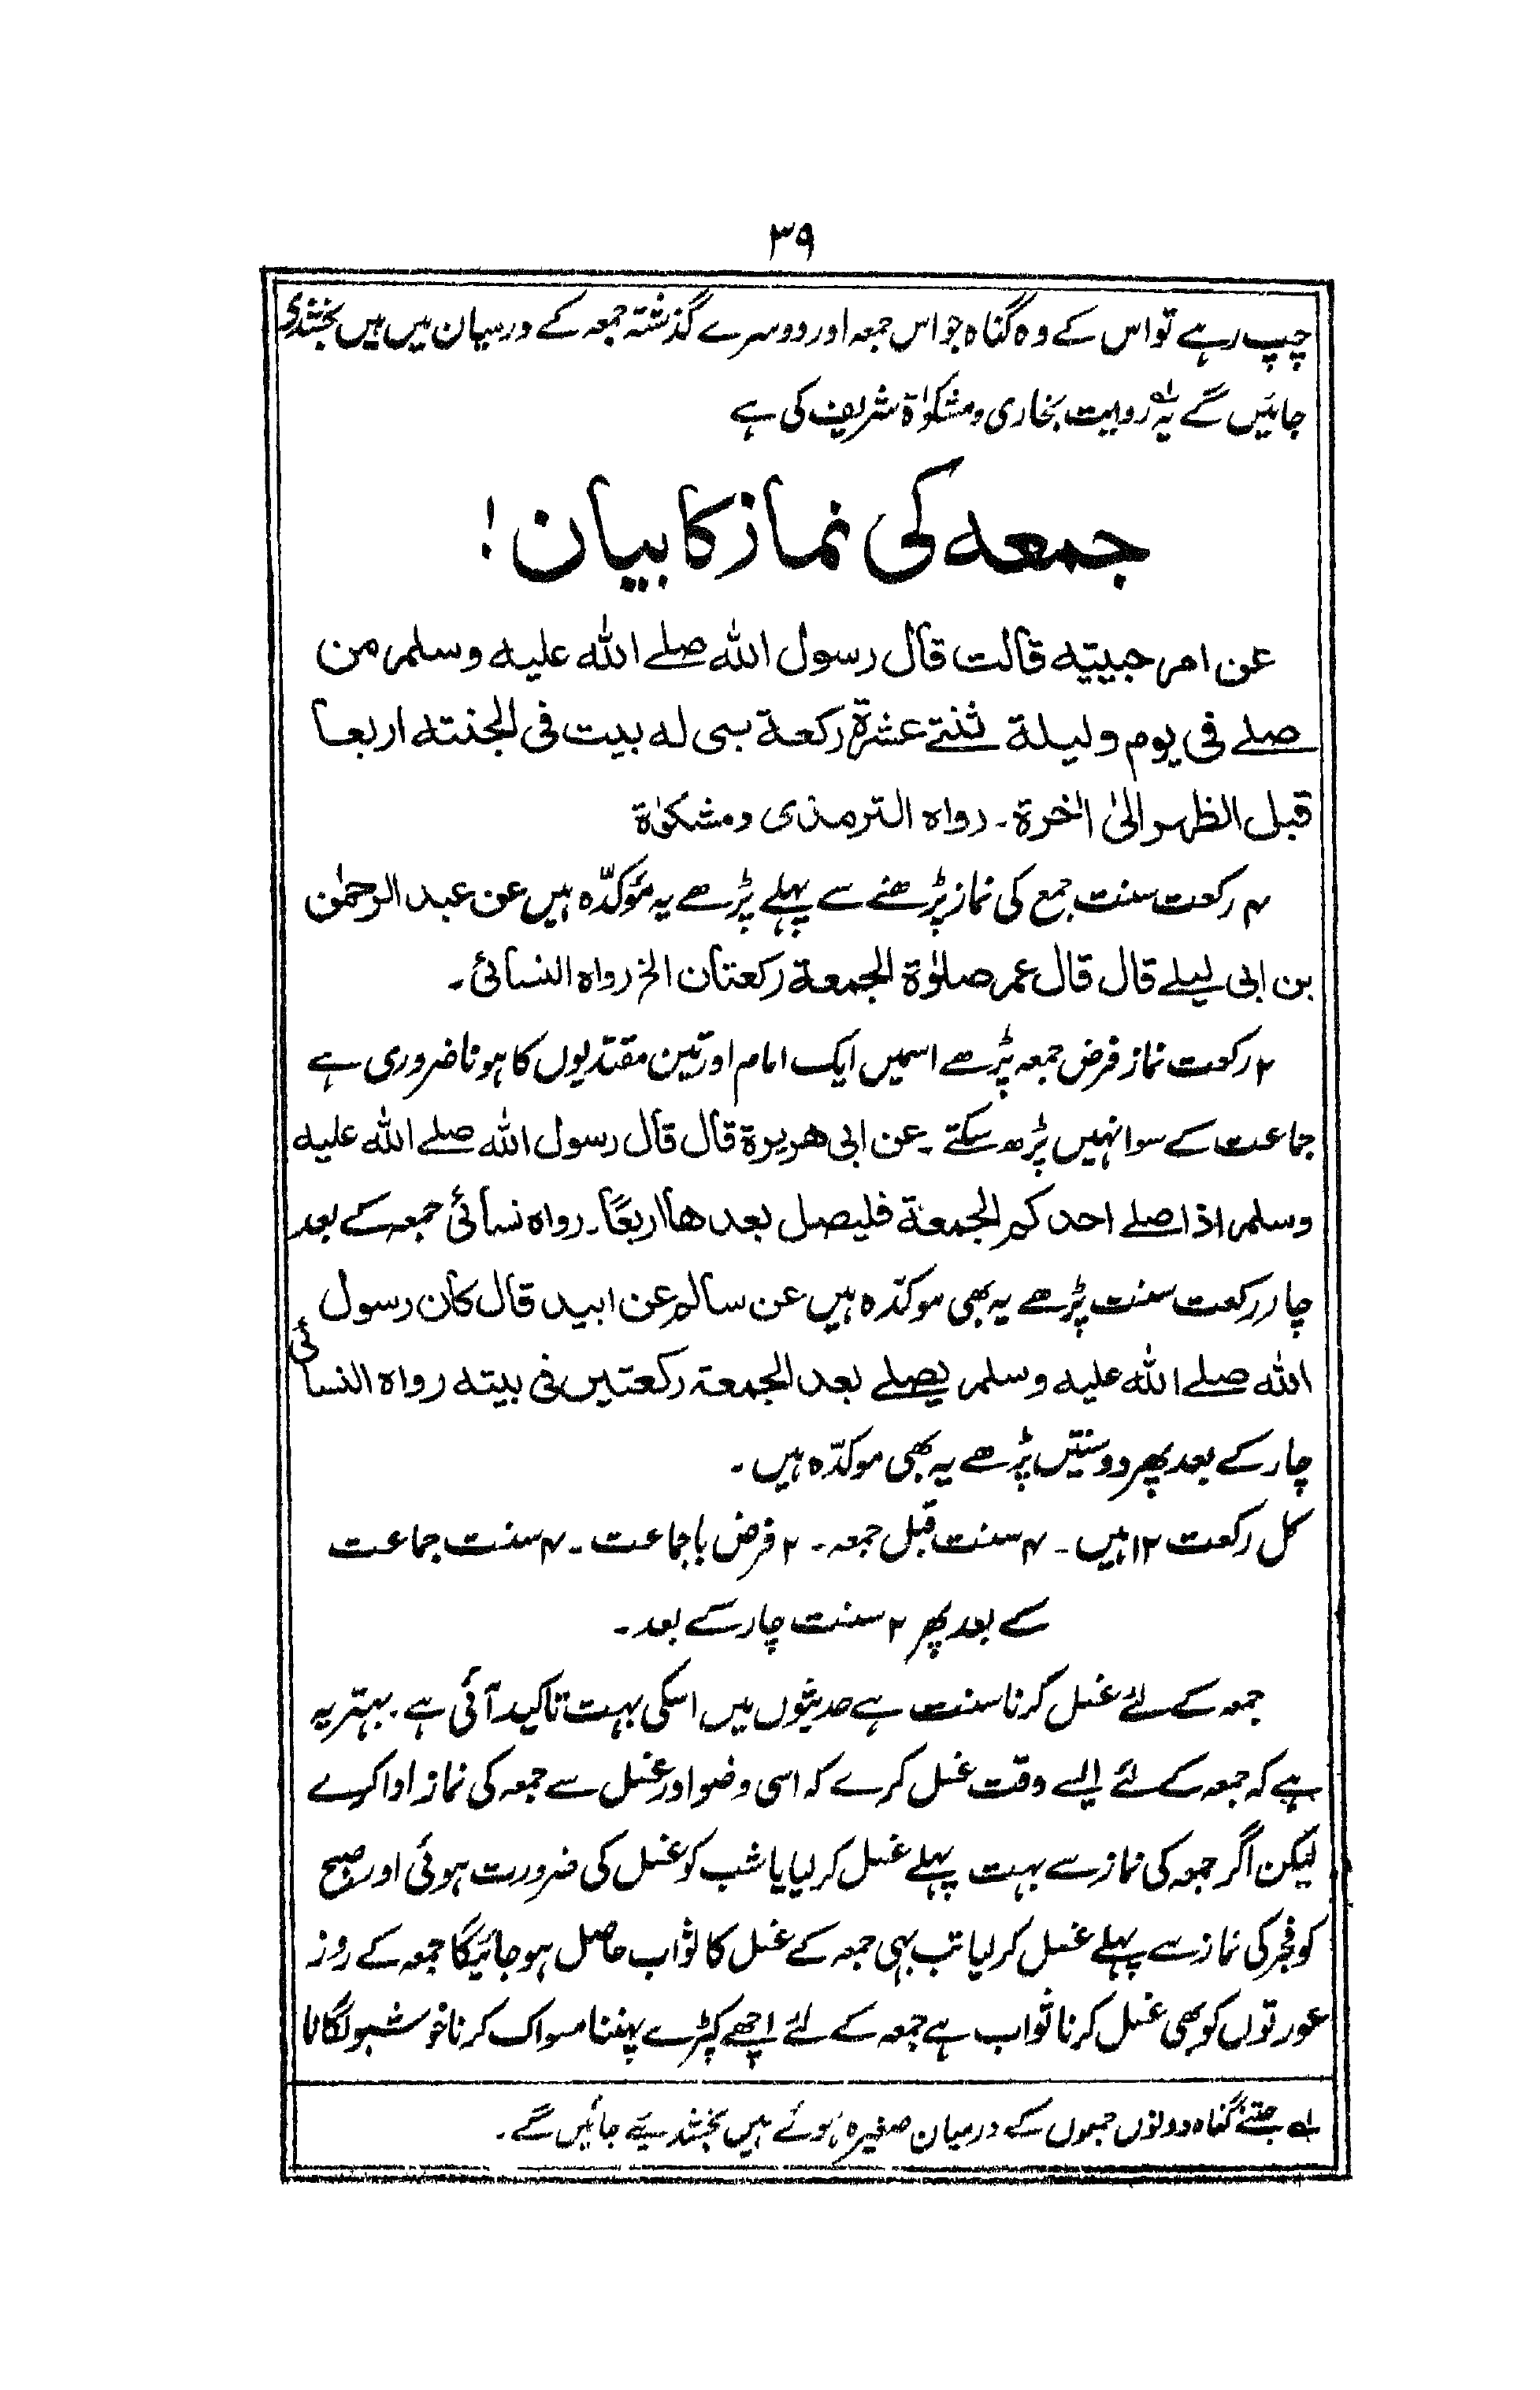 ۳۹
چپ رہے تو اس کے وہ گناہ جو اس جمعہ اور دوسرے گذشتہ جمعہ کے درمیان میں ہیں بخشدی
جائیں گے یہ روایت بخاری و مشکوٰۃ شریف کی ہے
جمعہ کی نماز کا بیان !
عن ام حبیبتہ قالت قال رسول اللہ صلے اللہ علیہ وسلم من
صلے فی یوم ولیلة ثنتے عشرة رکعة بنی لہ بیت فی الجنتہ اربعا
قبل الظہر الیٰ اٰخرة۔ رواہ الترمذی و مشکوٰة
۴ رکعت سنت جمع کی نماز پڑھنے سے پہلے پڑھے یہ مؤکدّہ ہیں عن عبد الرحمٰن
بن ابی لیلے قال قال عمر صلوٰة الجمعة رکعتان الخ رواہ النسائی۔
۲ رکعت نماز فرض جمعہ پڑھے اسمیں ایک امام اور تین مقتدیوں کا ہونا ضروری ہے
جماعت کے سوا نہیں پڑھ سکتے ۔ عن ابی ھریرة قال قال رسول اللہ صلے اللہ علیہ
وسلم اذا صلے احد کم الجمعة فلیصل بعد ھا اربعًا۔ رواہ نسائی جمعہ کے بعد
چار رکعت سنت پڑھے یہ بھی موکدّہ ہیں عن سالم عن ابیہ قال کان رسول
اللہ صلے اللہ علیہ وسلم یصلے بعد الجمعة رکعتین فی بیتہ رواہ النسائی
چار کے بعد پھر دو سنتیں پڑھے یہ بھی موکدّہ ہیں ۔
کل رکعت ۱۲ ہیں ۔ ۴ سنت قبل جمعہ ۔ ۲ فرض باجماعت ۔ ۴ سنت جماعت
کے بعد پھر ۲ سنت چار کے بعد ۔
جمعہ کے لئے غسل کرنا سنت ہے حدیثوں میں اسکی بہت تاکید آئی ہے ۔ بہتر یہ
ہے کہ جمعہ کے لئے ایسے وقت غسل کرے کہ اسی وضو اور غسل سے جمعہ کی نماز ادا کرے
لیکن اگر جمعہ کی نماز سے بہت پہلے غسل کر لیا یا شب کو غسل کی ضرورت ہوئی اور صبح
کو فجر کی نماز سے پہلے غسل کر لیا تب بہی جمعہ کے غسل کا ثواب حاصل ہو جائیگا جمعہ کے روز
عورتوں کو بھی غسل کرنا ثواب ہے جمعہ کے لئے اچھے کپڑے پہننا مسواک کرنا خوشبو لگانا
لے جتنے گناہ دونوں جمعوں کے درمیان صغیرہ ہوئے ہیں بخشدیئے جائیں گے ۔